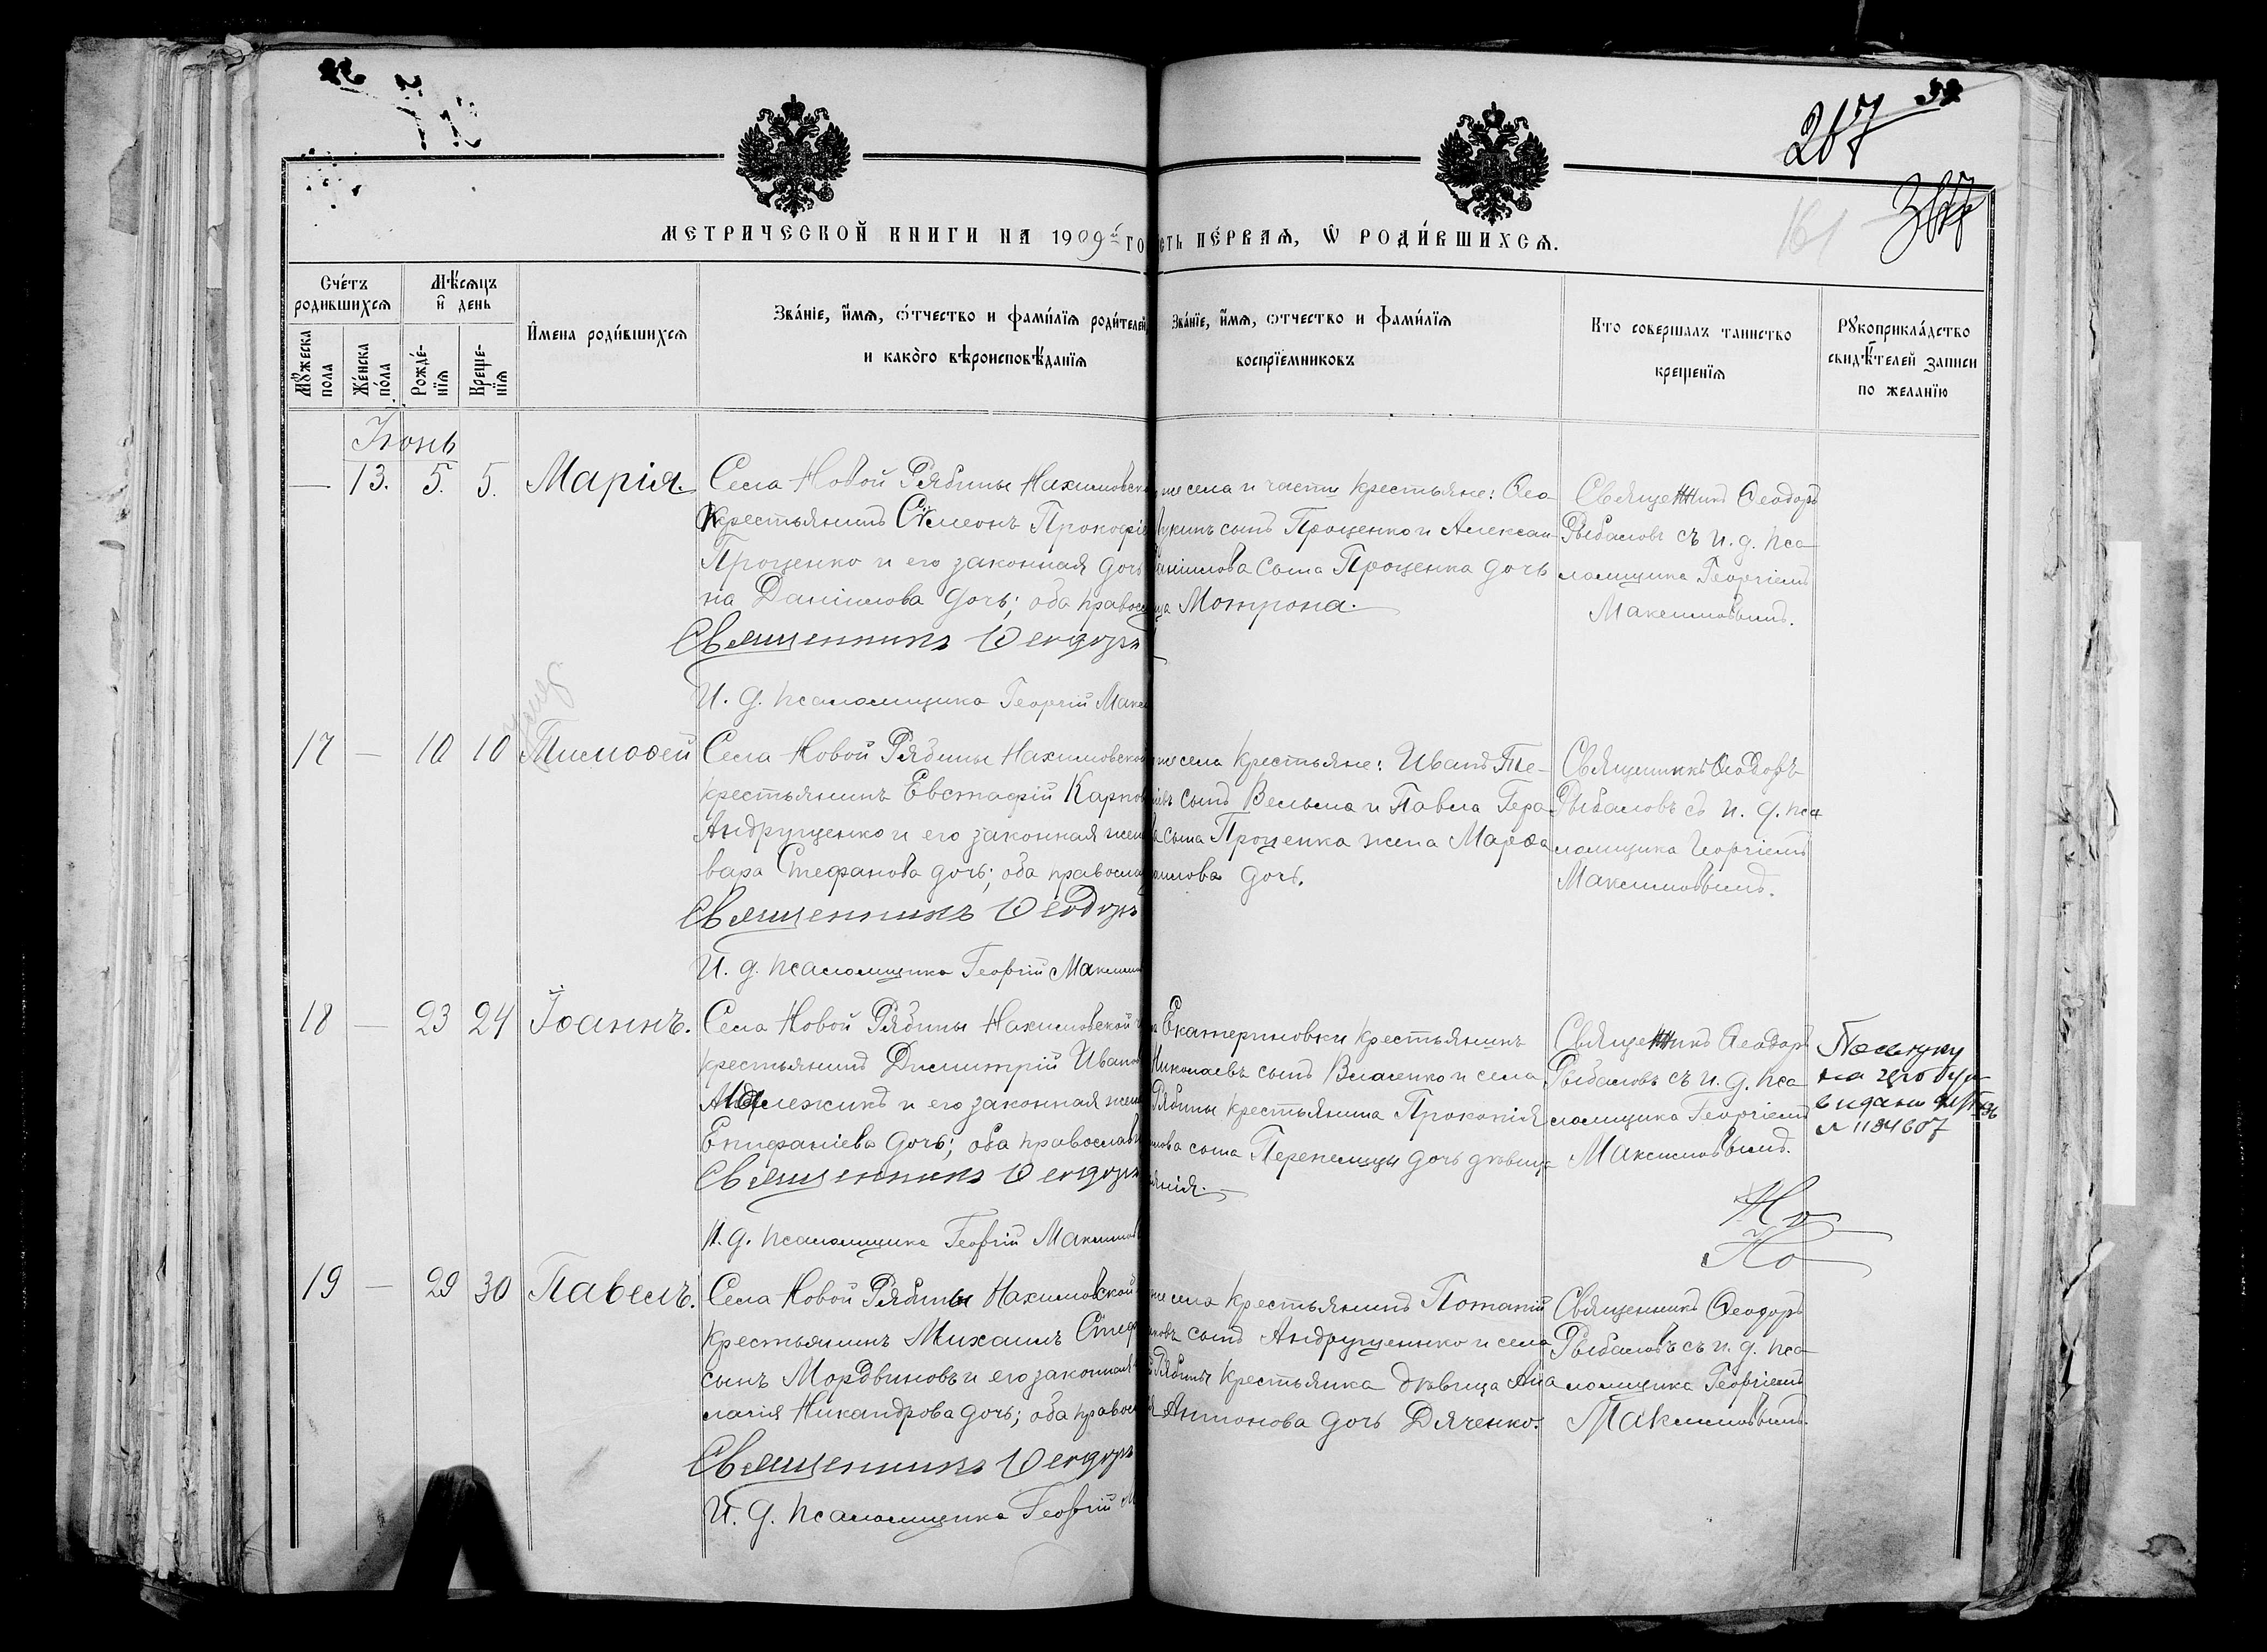 267
161
МЕТРИЧЕСКОЙ КНИГИ НА 1909й ГО
СТЬ ПЕРВАЯ, Ѡ РОДИВШИХСЯ.
Счетъ родившихся
Мужеска пола
Женска пола
Мѣсяцъ и день
Рожденїя
Крещенїя
Имена родившихся
Званіе, имя, отчество и фамилїя родителей,
и какого вѣроисповѣданїя
Званїе, имя, отчество и фамилїя
воспрїемниковъ
Кто совершалъ таинство
крещенїя
Рукоприкладство
свидѣтелей записи
по желанїю
Іюнь
— 13. 5. 5. Марія.
Села Новой Рябины Нахимовск
крестьянинъ Симеонъ Прокофіе
Проценко и его законная дочь
на Даніилова дочь; оба правосл
Священникъ Ѳеодоръ
И. д. псаломщика Георгій Макс
же села и части крестьяне: Ѳео
Лукинъ сынъ Проценко и Алексан
Даніилова сына Проценка дочь
ца Мотрона.
Священникъ Ѳеодоръ
Рыбаловъ съ и. д. пса
ломщика Георгіемъ
Максимовымъ.
17 — 10 10 Тимоѳей
Села Новой Рябины Нахимовской
крестьянинъ Евстафій Карпов
Андрущенко и его законная жен
вара Стефанова дочь; оба правосла
Священникъ Ѳеодоръ
И. д. псаломщика Георгій Максим
же села крестьяне: Иванъ Те-
сынъ Вельма и Павла Гера
сына Проценка жена Марѳа
дочь.
Священникъ Ѳеодоръ
Рыбаловъ съ и. д. пса
ломщика Георгіемъ
Максимовымъ.
18 — 23 24 Іоаннъ.
Села Новой Рябины Нахимовской
крестьянинъ Димитрій Иванов
и его законная жен
Епифаніева дочь; оба православн
Священникъ Ѳеодоръ
И. д. псаломщика Георгій Максимов
Екатериновки крестьянинъ
Николаевъ сынъ Власенко и села
Рябины крестьянина Прокопія
сына Перепелицы дочь дѣвица
Священникъ Ѳеодоръ
Рыбаловъ съ и. д. пса
ломщика Георгіемъ
Максимовымъ.
на
№ 1184607
19 — 29 30 Павелъ.
Села Новой Рябины Нахимовской
крестьянинъ Михаилъ Стеф
сынъ Мордвиновъ и его законная
лагія Никандрова дочь; оба правосл
Священникъ Ѳеодоръ
И. д. псаломщика Георгій М
же села крестьянинъ Потапій
сынъ Андрущенко и села
Рябины крестьянка дѣвица Ана
Антонова дочь Дяченко.
Священникъ Ѳеодоръ
Рыбаловъ съ и. д. пса
ломщика Георгіемъ
Максимовымъ.